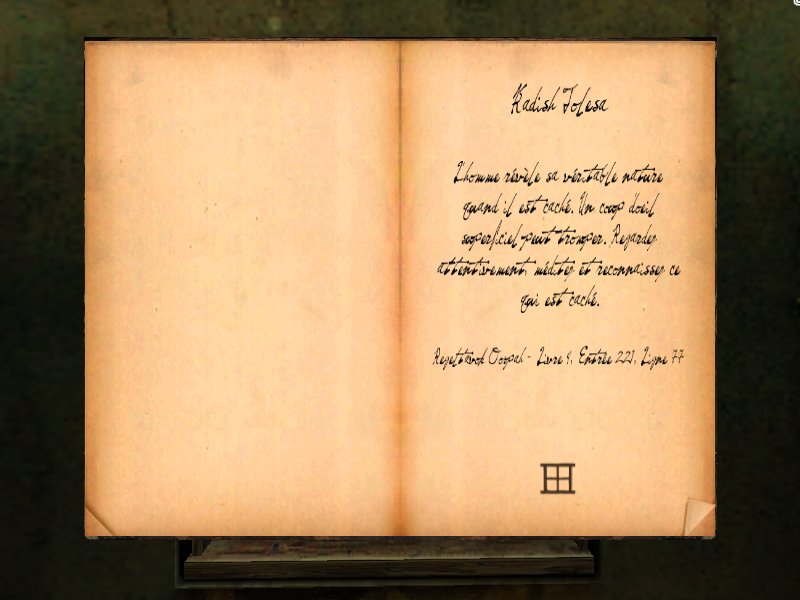 Kadish Tolesa
L'homme révèle sa véritable nature
quand il est caché. Un coup d'oeil
superficiel peut tromper. Regardez
attentivement, méditez et reconnaissez ce
qui est caché.
Livre 1, Entrée 221, Ligne 77